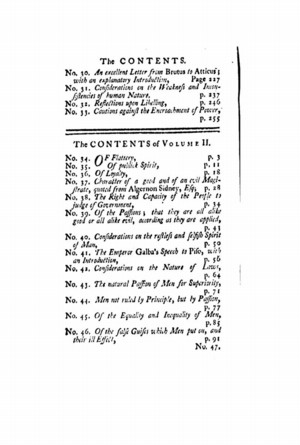 The CONTENTS.
No. 30. An excellent Letter from Brutus to Atticus;
with an explanatory Introduction, Page 227
No. 31. Considerations on the Weakness and Incon-
sistencies of human Nature. p. 237
No. 32. Reflections upon Libelling, p. 246
No. 33. Cautions against the Encroachment of Power,
p. 255
The CONTENTS of VOLUME II.
No. 34. OF Flattery, p. 3
No. 35. Of publick Spirit, p. 11
No. 36. Of Loyalty, p. 18
No. 37. Character of a good and of an evil Magi-
strate, quoted from Algernon Sidney, Esq; p. 28
No. 38. The Right and Capacity of the People to
judge of Government, p. 34
No. 39. Of the Passions; that they are all alike
good or all alike evil, according as they are applied,
p. 43
No. 40. Considerations on the restless and selfish Spirit
of Man, p. 50
No. 41. The Emperor Galba's Speech to Piso, with
an Introduction, p. 56
No. 42. Considerations on the Nature of Laws,
p. 64
No. 43. The natural Passion of Men for Superiority,
p. 71
No. 44. Men not ruled by Principle, but by Passion,
p. 77
No. 45. Of the Equality and Inequality of Men,
p. 85
No. 46. Of the false Guises which Men put on, and
their ill Effect, p. 91
No. 47.